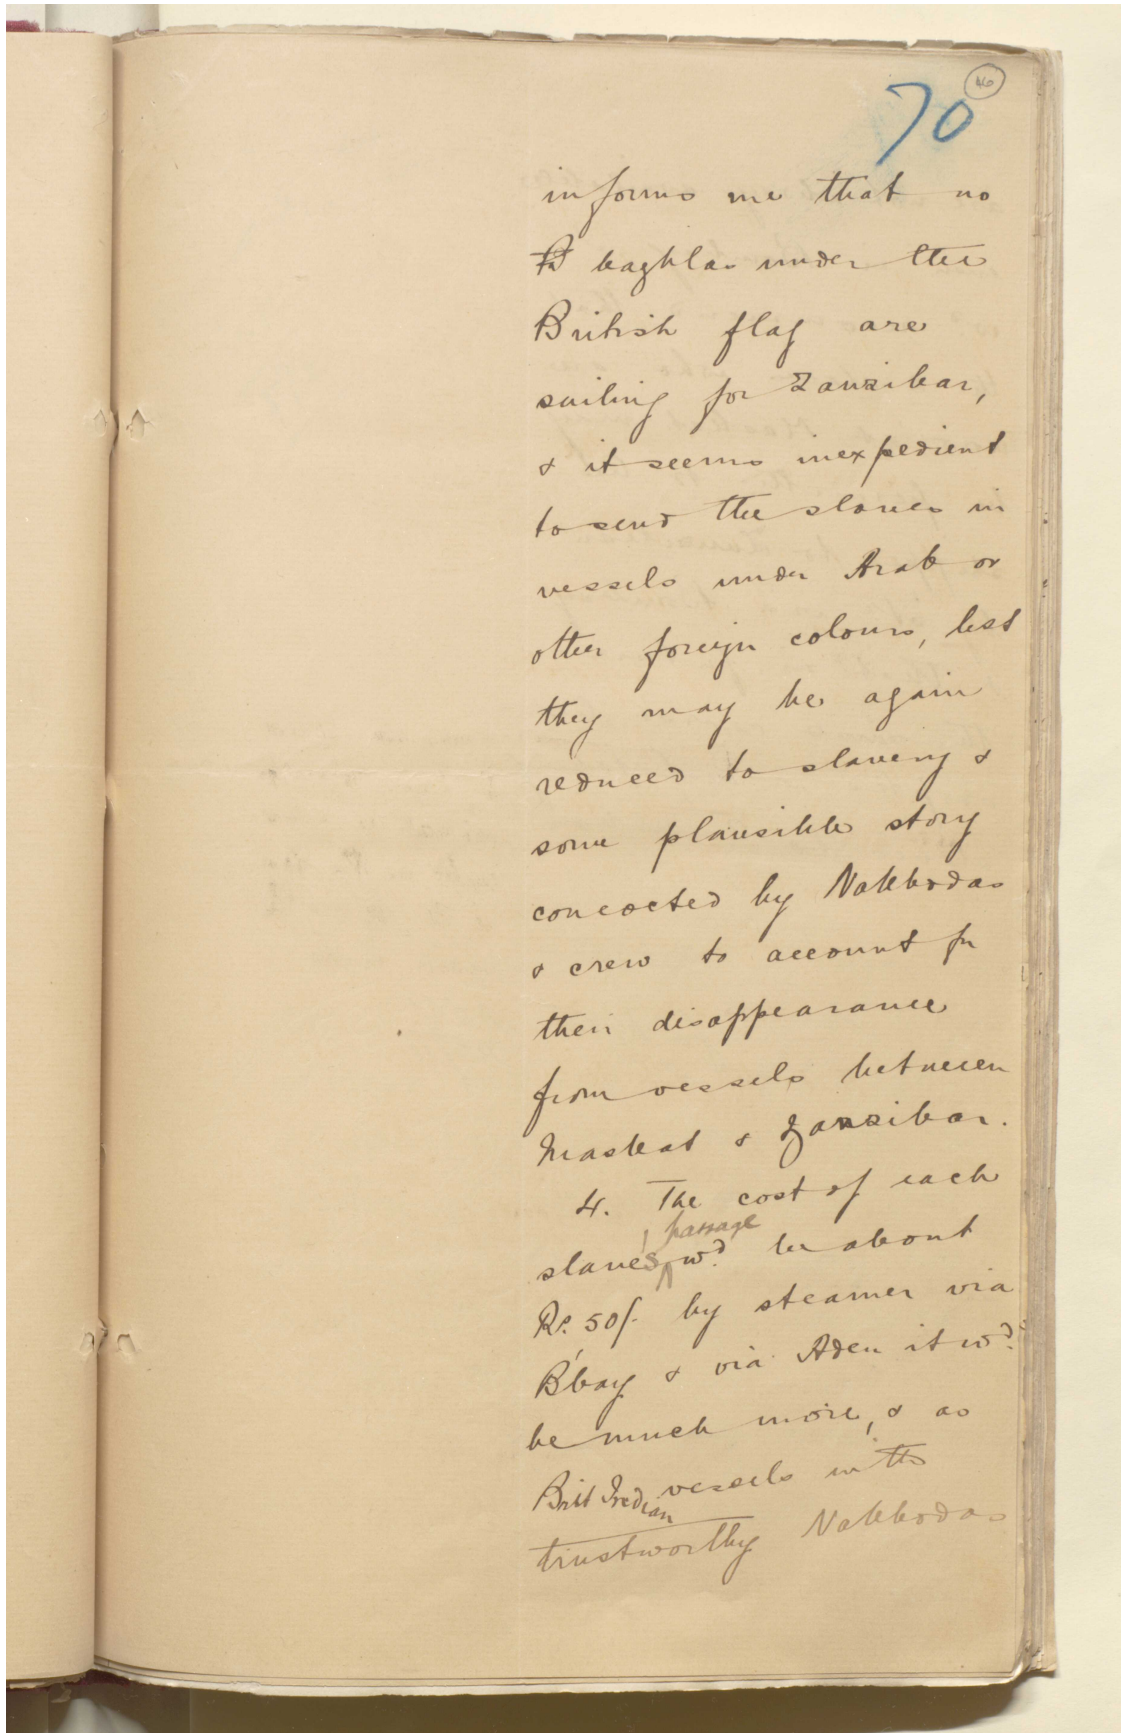 70
46
informs me that no
baghlas under the
British flag are
sailing for Zanzibar,
& it seems inexpedient
to send the slaves in
vessels under Arab or
other foreign colours, lest
they may be again
reduced to slavery &
some plausible story
concocted by Nakhodas
& crew to account for
their disappearance
from vessels between
Maskat & Zanzibar.
4. The cost of each
passage
slaves wd. be about
Rs. 50/- by steamer via
B'bay & via Aden it wd.
be much more, & as
Brit Indian vessels with
trustworthy Nakhodas